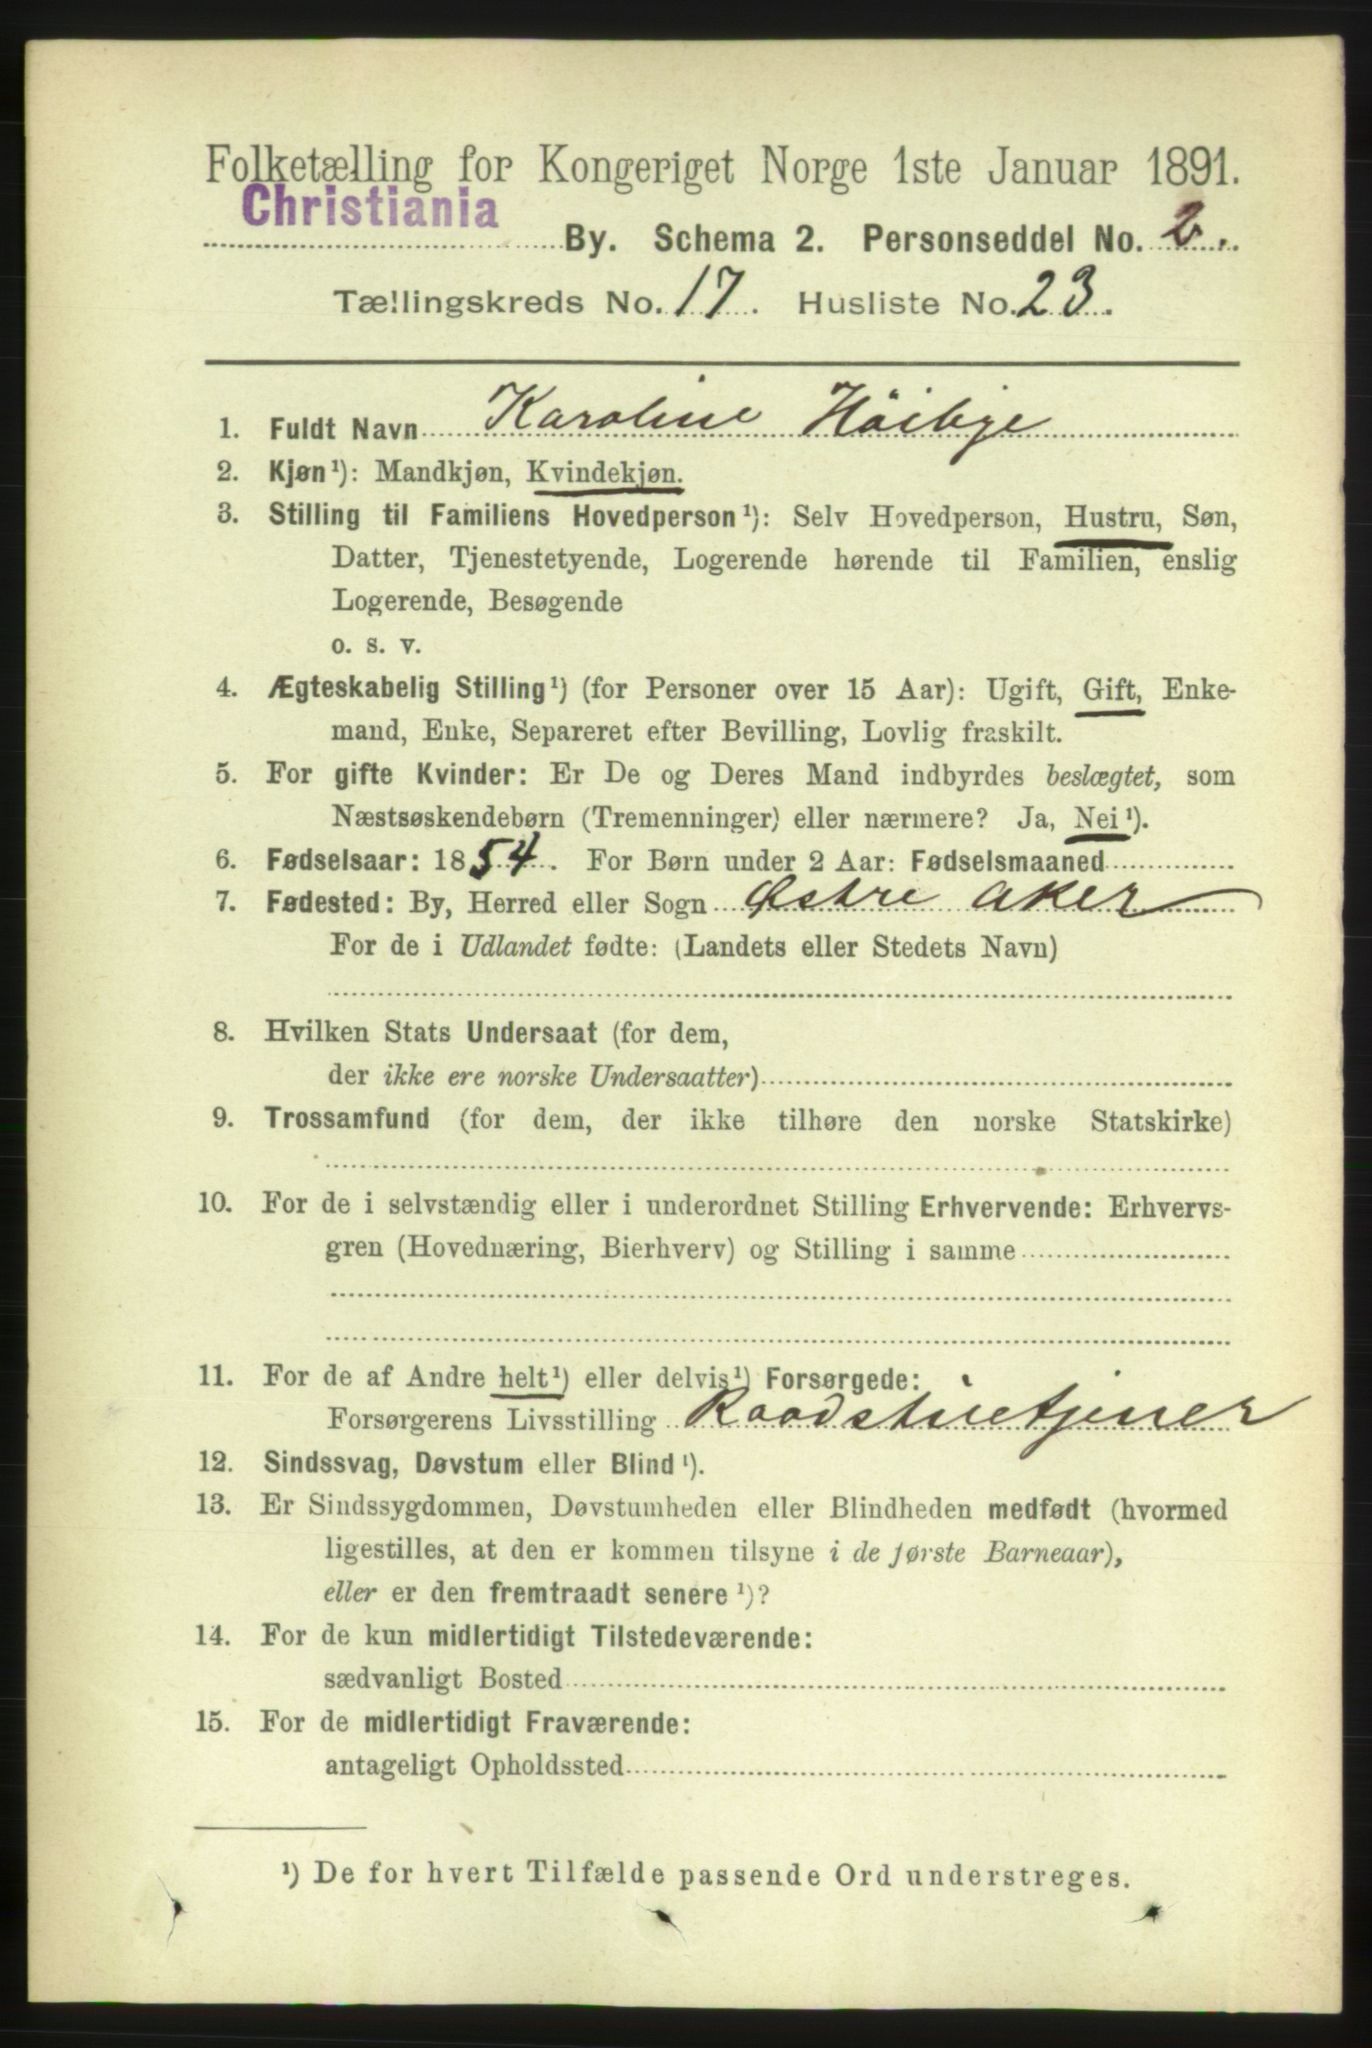 Folketælling for Kongeriget Norge 1ste Januar 1891.
Christiania By. Schema 2. Personseddel No. 2.
Tællingskreds No. 17. Husliste No. 23.
1. Fuldt Navn Karoline Höibye
2. Kjøn¹): Mandkjøn, Kvindekjøn.
3. Stilling til Familiens Hovedperson¹): Selv Hovedperson, Hustru, Søn,
Datter, Tjenestetyende, Logerende hørende til Familien, enslig
Logerende, Besøgende
o. s. v.
4. Ægteskabelig Stilling¹) (for Personer over 15 Aar): Ugift, Gift, Enke-
mand, Enke, Separeret efter Bevilling, Lovlig fraskilt.
5. For gifte Kvinder: Er De og Deres Mand indbyrdes beslægtet, som
Næstsøskendebørn (Tremenninger) eller nærmere? Ja, Nei¹).
6. Fødselsaar: 1854. For Børn under 2 Aar: Fødselsmaaned
7. Fødested: By, Herred eller Sogn Østre Aker
For de i Udlandet fødte: (Landets eller Stedets Navn)
8. Hvilken Stats Undersaat (for dem,
der ikke ere norske Undersaatter)
9. Trossamfund (for dem, der ikke tilhøre den norske Statskirke)
10. For de i selvstændig eller i underordnet Stilling Erhvervende: Erhvervs-
gren (Hovednæring, Bierhverv) og Stilling i samme
11. For de af Andre helt¹) eller delvis¹) Forsørgede:
Forsørgerens Livsstilling Raadstuetjener
12. Sindssvag, Døvstum eller Blind¹).
13. Er Sindssygdommen, Døvstumheden eller Blindheden medfødt (hvormed
ligestilles, at den er kommen tilsyne i de første Barneaar),
eller er den fremtraadt senere¹)?
14. For de kun midlertidigt Tilstedeværende:
sædvanligt Bosted
15. For de midlertidigt Fraværende:
antageligt Opholdssted
¹) De for hvert Tilfælde passende Ord understreges.